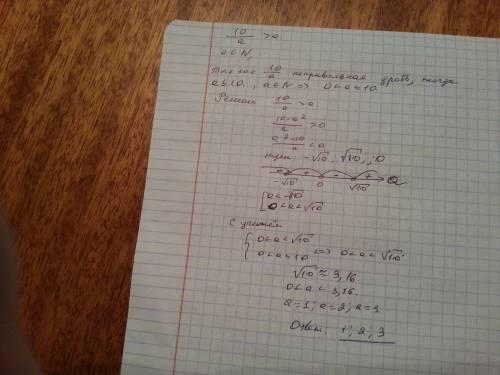 10/a > a
a ∈ N,
Так как 10/a неправильная дробь, тогда
a ≤ 10, a ∈ N => 0 < a ≤ 10.
Решим 10/a > a
10-a²/a > 0
a²-10/a < 0
нули: -√10; √10; 0
- + - + a
-√10 0 √10
[ a < -√10
0 < a < √10
С учётом
{ 0 < a < √10
0 < a ≤ 10 <=> 0 < a < √10
√10 ≈ 3,16.
0 < a < 3,16.
a = 1; a = 2; a = 3
Ответ: 1; 2; 3